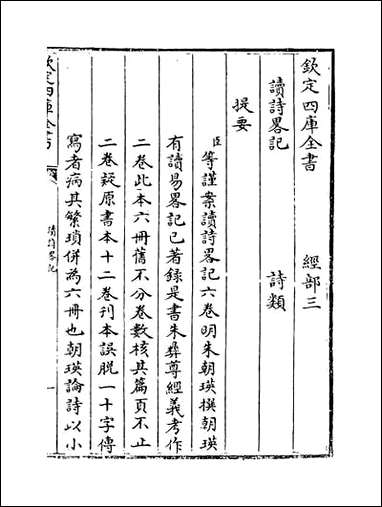 欽定四庫全書 經部三
讀詩畧記 詩類
提要
臣等謹案讀詩畧記六卷明朱朝瑛撰朝瑛
有讀易畧記已著録是書朱彝尊經義考作
二卷此本六冊舊不分卷數核其篇頁不止
二卷疑原書本十二卷刊本誤脱一十字傳
寫者病其繁瑣併為六冊也朝瑛論詩以小
欽定四庫全書
讀詩畧記
一